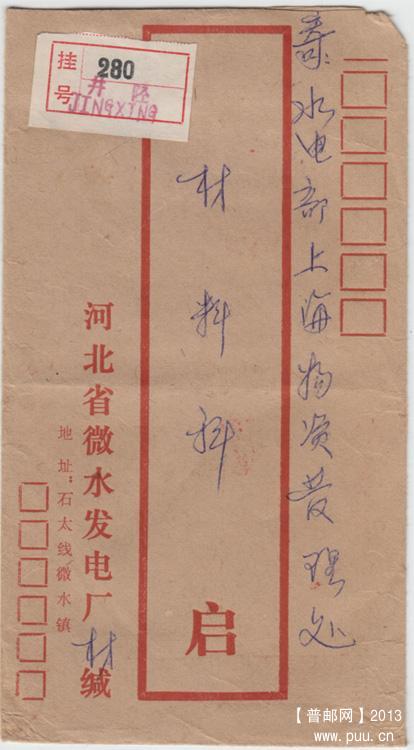 寄水电部上海物资管理处
材料科
启
挂号
280
井陉
JINGXING
河北省微水发电厂材缄
地址：石太线微水镇
【普邮网】2013
www.puu.cn